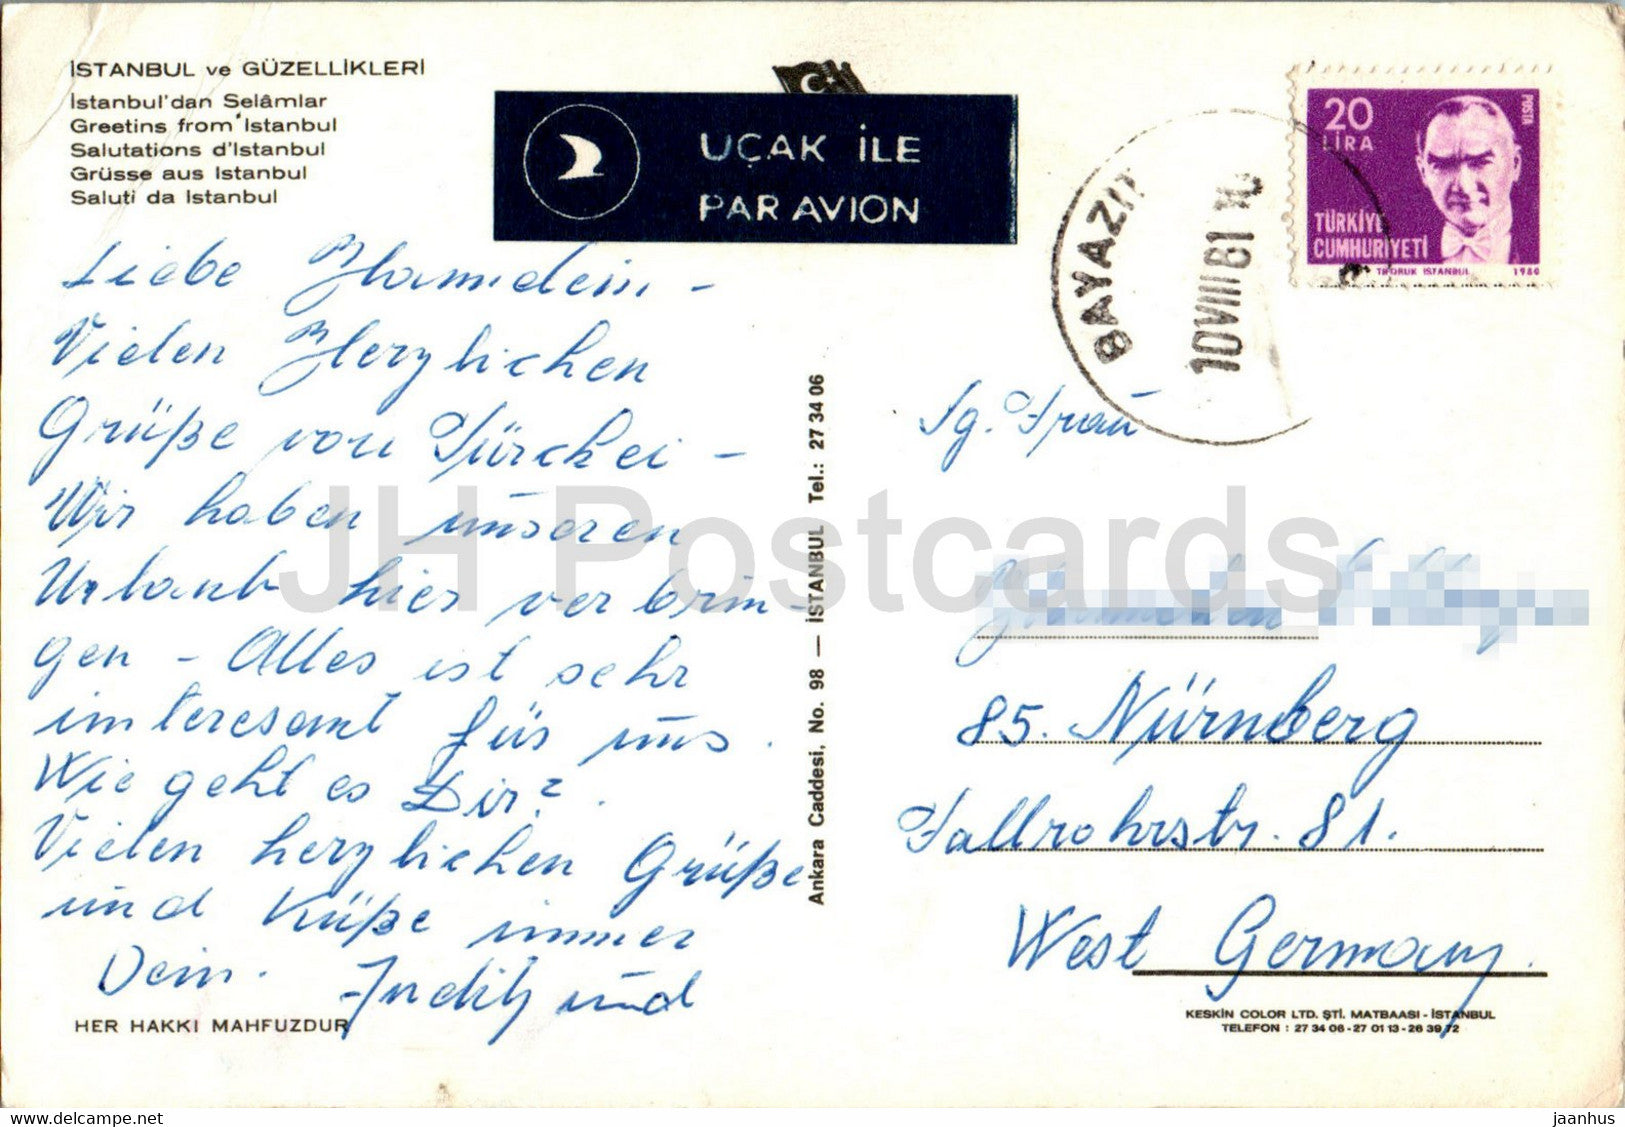 İSTANBUL ve GÜZELLİKLERİ
İstanbul'dan Selâmlar
Greetins from İstanbul
Salutations d'İstanbul
Grüsse aus İstanbul
Saluti da İstanbul
UÇAK İLE
PAR AVION
20
LİRA
POSTA
TÜRKİYE
CUMHURİYETİ
1980
BAYAZIT
10VIII81
Liebe
Vielen Herzlichen
Grüße von Türckei -
Wir haben unseren
Urlaub hier verbrin-
gen - Alles ist sehr
interesant für uns.
Wie geht es Dir?.
Vielen herzlichen Grüße
und Küße immer
Dein. Judith und
HER HAKKI MAHFUZDUR
Ankara Caddesi, No. 98 — İSTANBUL Tel.: 27 34 06
Sg. Frau
85. Nürnberg
Fallrohrstr. 81.
West Germany.
KESKİN COLOR LTD. ŞTİ. MATBAASI - İSTANBUL
TELEFON : 27 34 06 - 27 01 13 - 26 39 72
JH Postcards
delcampe.net
jaanhus